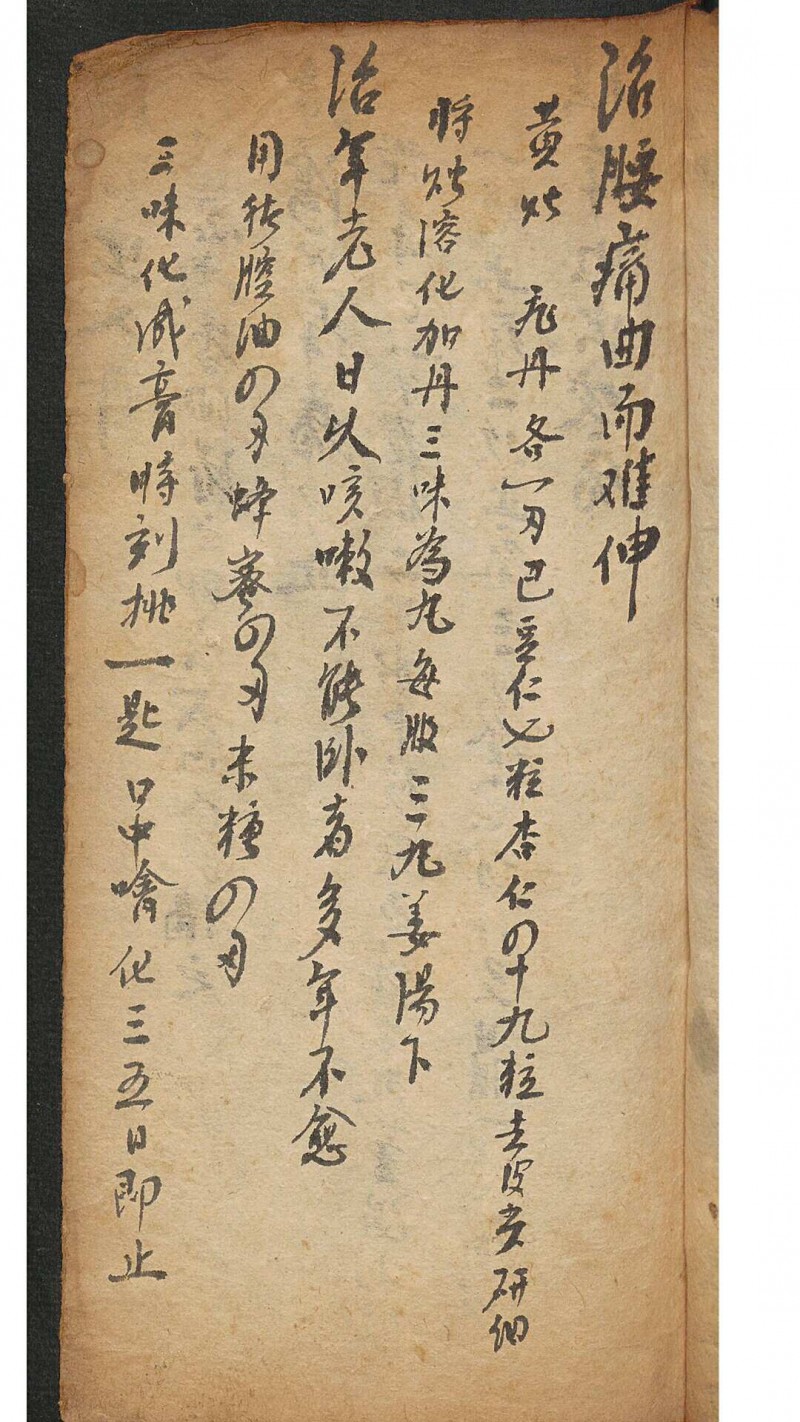 治腰痛曲而难伸
黄蜡 飛丹各一刄巴豆仁七粒杏仁四十九粒去皮尖研细
将蜡溶化加丹三味為丸每服三丸姜湯下
治年老人日久咳嗽不能卧者多年不愈
用猪腔油四刄蜂蜜四刄米糖四刄
三味化成膏時刻挑一匙口中噙化三五日即止